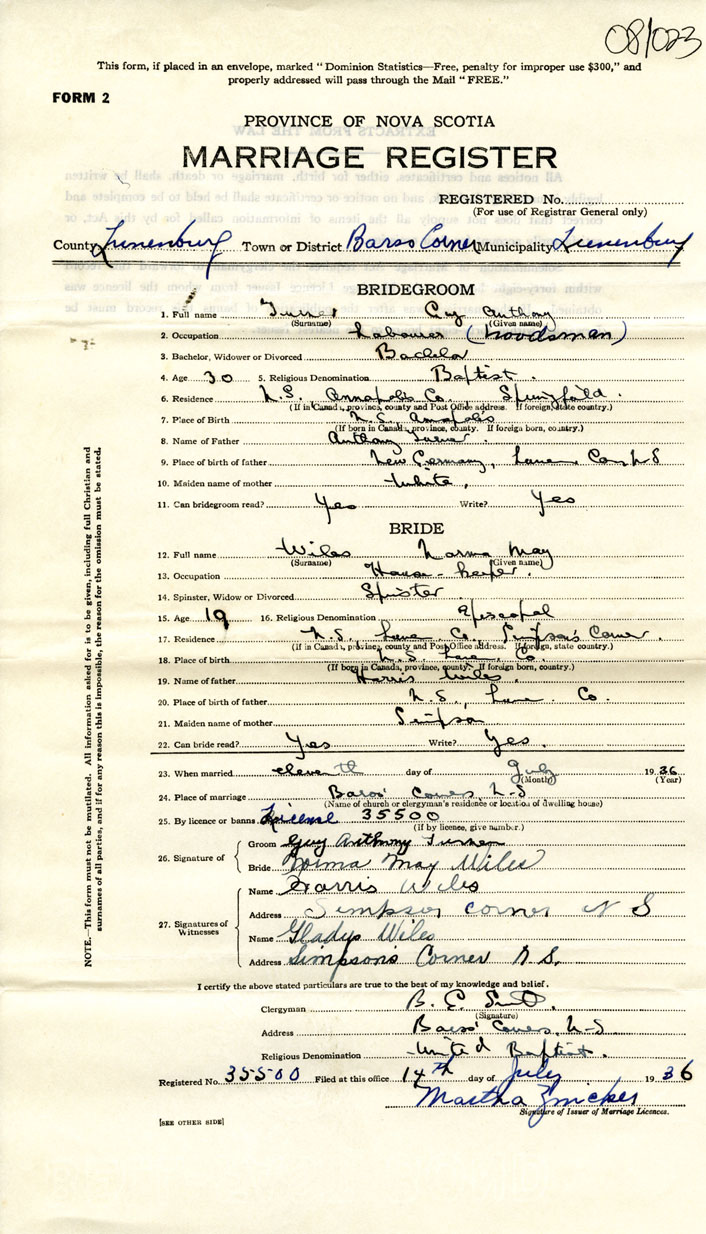 08/023
This form, if placed in an envelope, marked "Dominion Statistics—Free, penalty for improper use $300," and
properly addressed will pass through the Mail "FREE."
FORM 2
PROVINCE OF NOVA SCOTIA
MARRIAGE REGISTER
REGISTERED No.
(For use of Registrar General only)
County Lunenburg Town or District Barss Corner Municipality Lunenburg
BRIDEGROOM
1. Full name Turner Guy Anthony
(Surname) (Given name)
2. Occupation Labourer (Woodsman)
3. Bachelor, Widower or Divorced Bachelor
4. Age 30 5. Religious Denomination Baptist.
6. Residence N.S. Annapolis Co. Springfield.
(If in Canada, province, county and Post Office address. If foreign, state country.)
7. Place of Birth N.S. Annapolis
(If born in Canada, province, county. If foreign born, country.)
8. Name of Father Anthony Turner.
9. Place of birth of father New Germany, Lunen. Co. N S
10. Maiden name of mother White,
11. Can bridegroom read? Yes Write? Yes
BRIDE
12. Full name Wiles Norma May
(Surname) (Given name)
13. Occupation House-keeper.
14. Spinster, Widow or Divorced Spinster
15. Age 19 16. Religious Denomination Episcopal
17. Residence N.S. Lune. Co. Simpson's Corner.
(If in Canada, province, county and Post Office address. If foreign, state country.)
18. Place of birth N.S. Lune. Co.
(If born in Canada, province, county. If foreign born, country.)
19. Name of father Harris Wiles.
20. Place of birth of father N.S., Lune. Co.
21. Maiden name of mother Simpson
22. Can bride read? Yes Write? Yes.
23. When married eleventh day of July 1936
(Month) (Year)
24. Place of marriage Barss' Corner, N-S
(Name of church or clergyman's residence or location of dwelling house)
25. By licence or banns License 35500
(If by licence, give number.)
26. Signature of
Groom Guy Anthony Turner
Bride Norma May Wiles
27. Signatures of Witnesses
Name Harris Wiles
Address Simpson corner N S
Name Gladys Wiles
Address Simpson's Corner N.S.
I certify the above stated particulars are true to the best of my knowledge and belief.
Clergyman B. E.
(Signature)
Address Barss' Corner, N-S
Religious Denomination United Baptist.
Registered No. 35500 Filed at this office 14th day of July 1936
Martha Zwicker
Signature of Issuer of Marriage Licences.
[SEE OTHER SIDE]
NOTE.—This form must not be mutilated. All information asked for is to be given, including full Christian and
surnames of all parties, and if for any reason this is impossible, the reason for the omission must be stated.